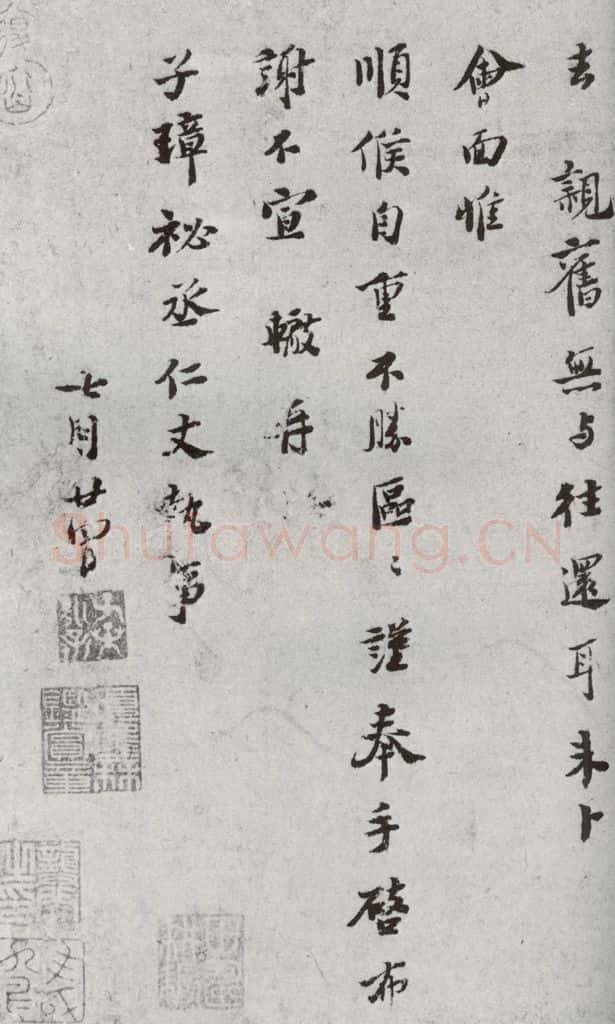 去親舊無与往還耳未卜
會面惟
順候自重不勝區〻謹奉手啓布
謝不宣轍再
子璋祕丞仁丈執事
七月廿
Shufawang.CN